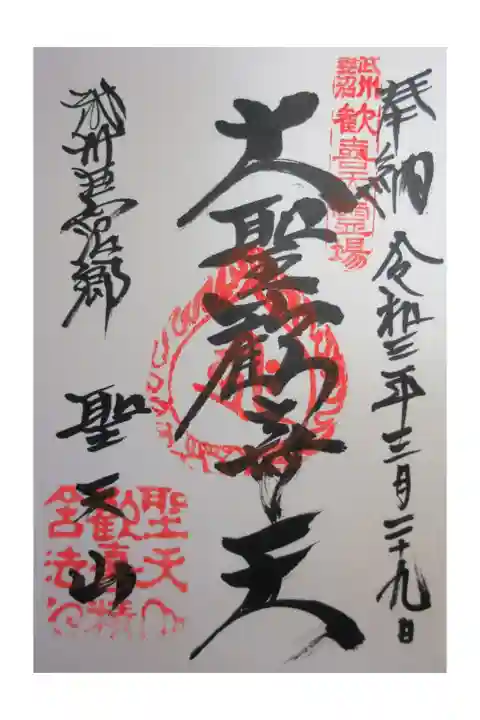 奉納 令和三年三月二十九日
武州妻沼
歓喜天靈場
大聖歓喜天
武州妻沼郷 聖天山
聖天山
歡喜精
舎法印